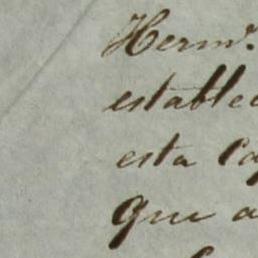 Herm.
estable
esta Ca
que a